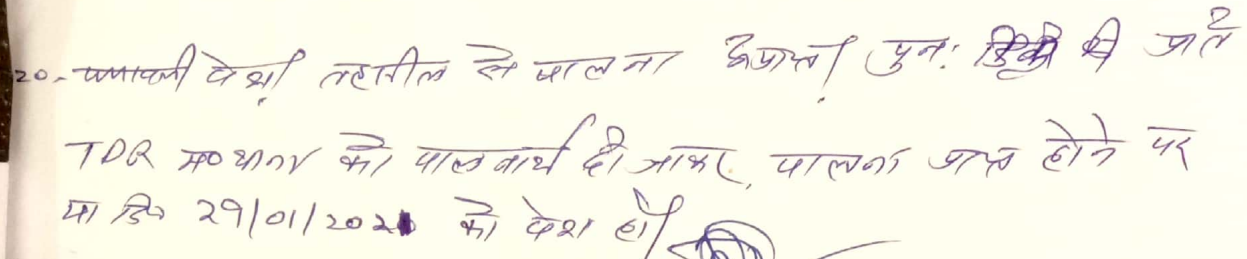 20 - पत्रावली पेश। तहसील से पालना अप्राप्त। पुनः डिक्री की प्रति
TDR को पालनार्थ दी जाकर, पालना प्राप्त होने पर
29/01/2021 को पेश हो।